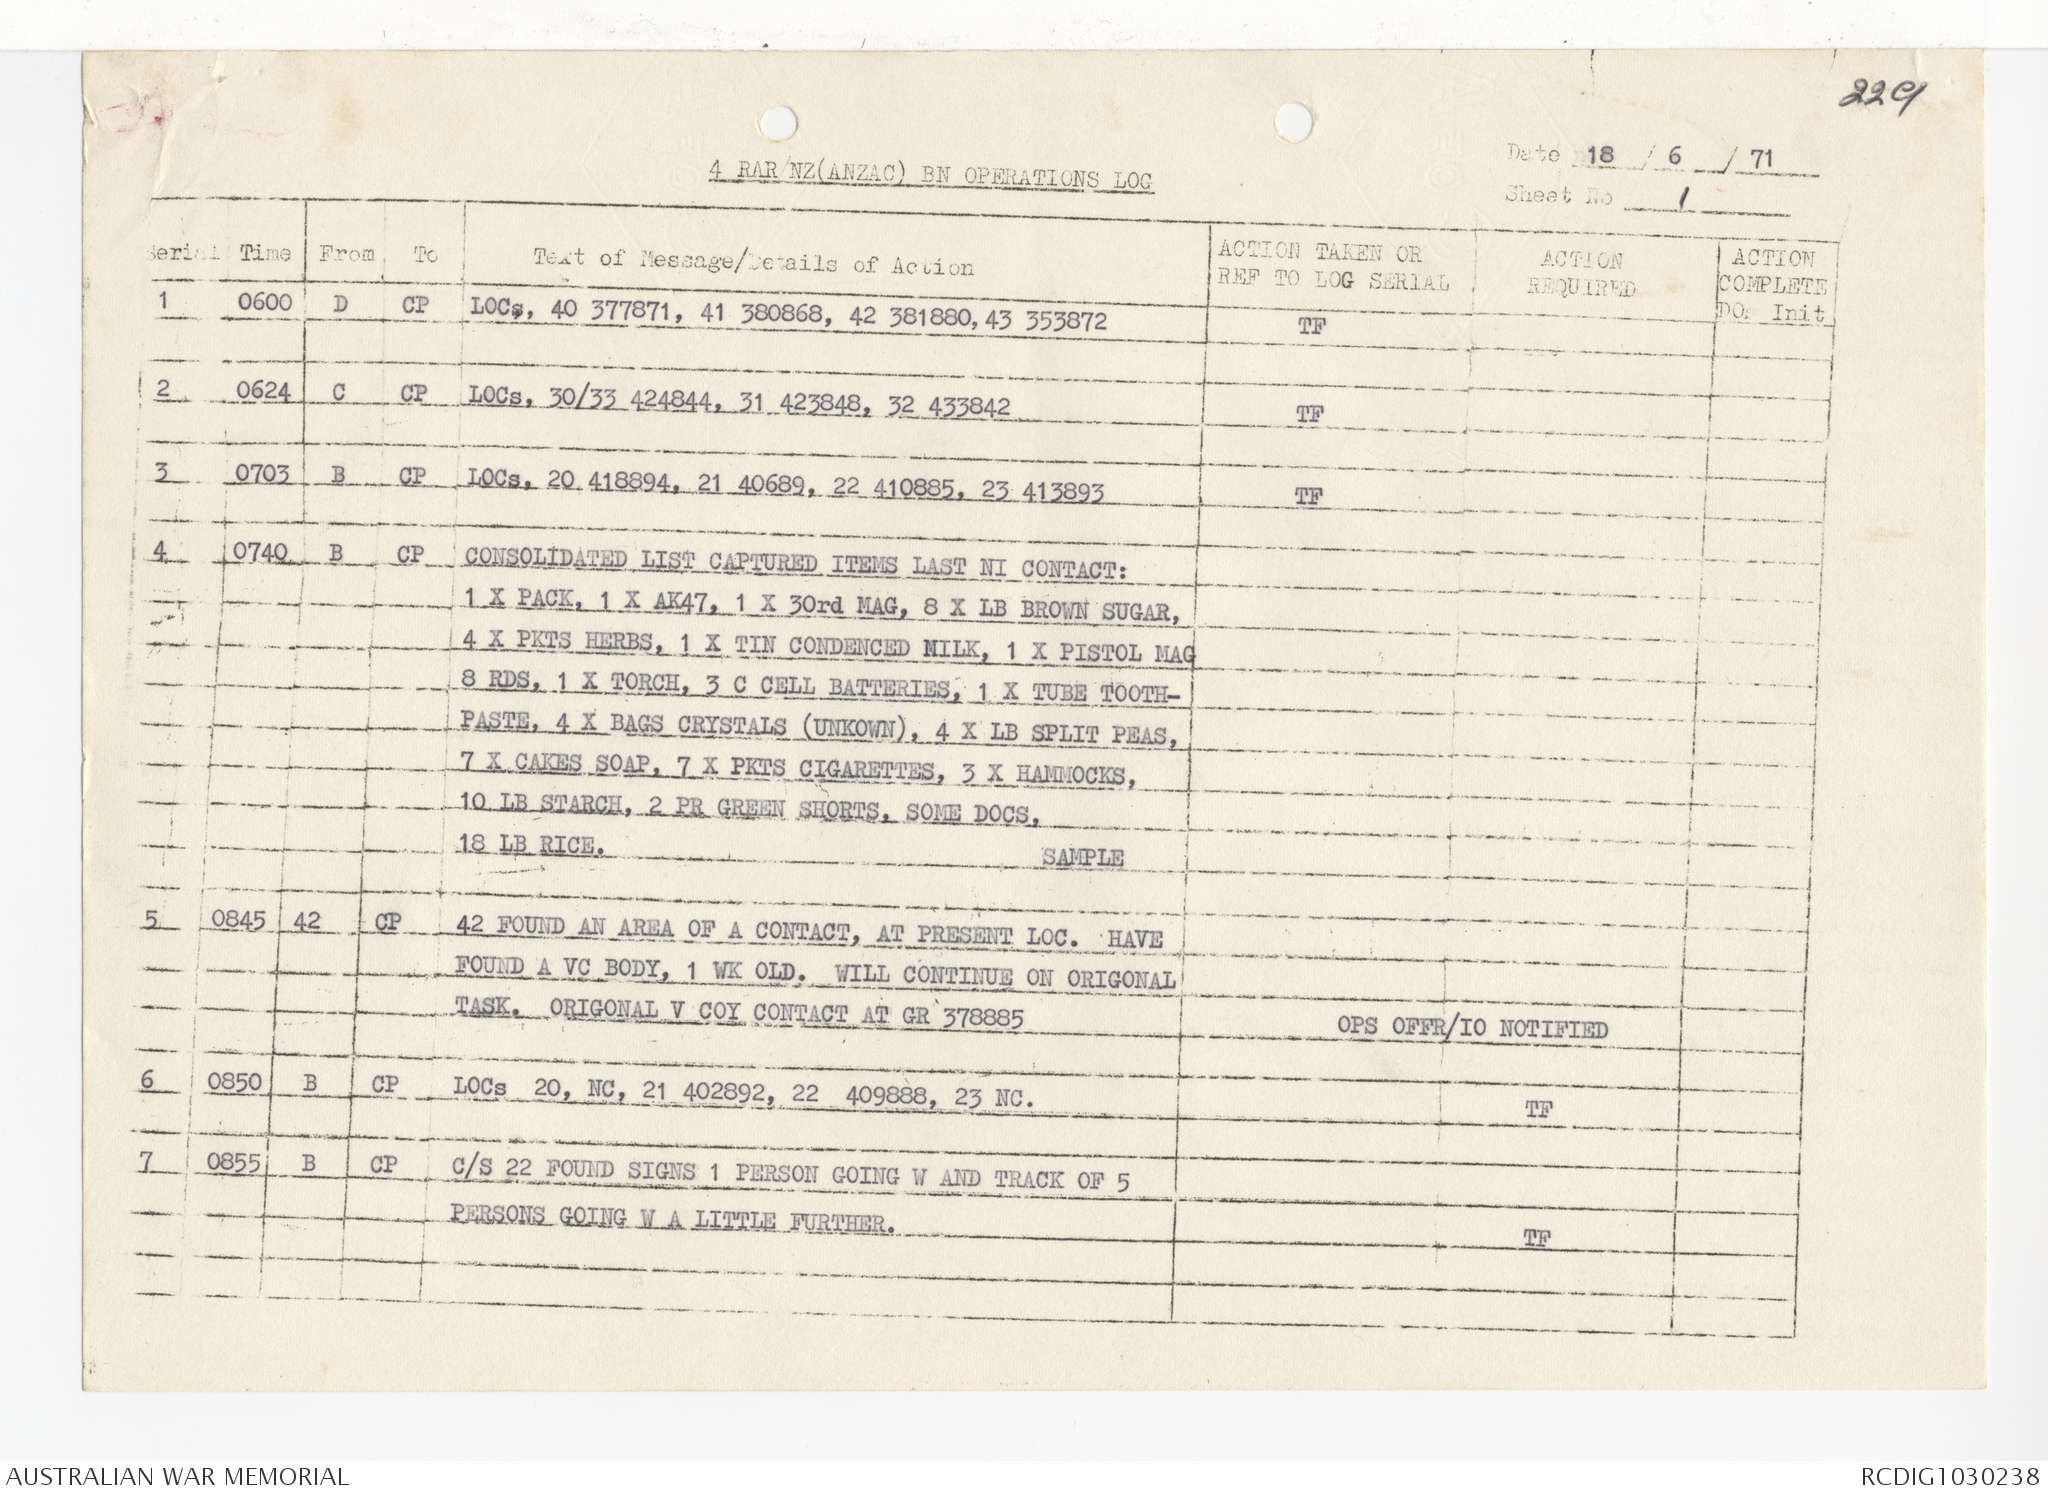 229
4 RAR/NZ(ANZAC) BN OPERATIONS LOG
Date 18 / 6 / 71
Sheet No 1
Serial Time From To Text of Message/Details of Action ACTION TAKEN OR REF TO LOG SERIAL ACTION REQUIRED ACTION COMPLETE DO. Init
1 0600 D CP LOCs, 40 377871, 41 380868, 42 381880, 43 353872 TF
2 0624 C CP LOCs, 30/33 424844, 31 423848, 32 433842 TF
3 0703 B CP LOCs, 20 418894, 21 40689, 22 410885, 23 413893 TF
4 0740 B CP CONSOLIDATED LIST CAPTURED ITEMS LAST NI CONTACT:
1 X PACK, 1 X AK47, 1 X 30rd MAG, 8 X LB BROWN SUGAR,
4 X PKTS HERBS, 1 X TIN CONDENCED MILK, 1 X PISTOL MAG
8 RDS, 1 X TORCH, 3 C CELL BATTERIES, 1 X TUBE TOOTH-
PASTE, 4 X BAGS CRYSTALS (UNKOWN), 4 X LB SPLIT PEAS,
7 X CAKES SOAP, 7 X PKTS CIGARETTES, 3 X HAMMOCKS,
10 LB STARCH, 2 PR GREEN SHORTS, SOME DOCS,
18 LB RICE. SAMPLE
5 0845 42 CP 42 FOUND AN AREA OF A CONTACT, AT PRESENT LOC. HAVE
FOUND A VC BODY, 1 WK OLD. WILL CONTINUE ON ORIGONAL
TASK. ORIGONAL V COY CONTACT AT GR 378885 OPS OFFR/IO NOTIFIED
6 0850 B CP LOCs 20, NC, 21 402892, 22 409888, 23 NC. TF
7 0855 B CP C/S 22 FOUND SIGNS 1 PERSON GOING W AND TRACK OF 5
PERSONS GOING W A LITTLE FURTHER. TF
AUSTRALIAN WAR MEMORIAL RCDIG1030238